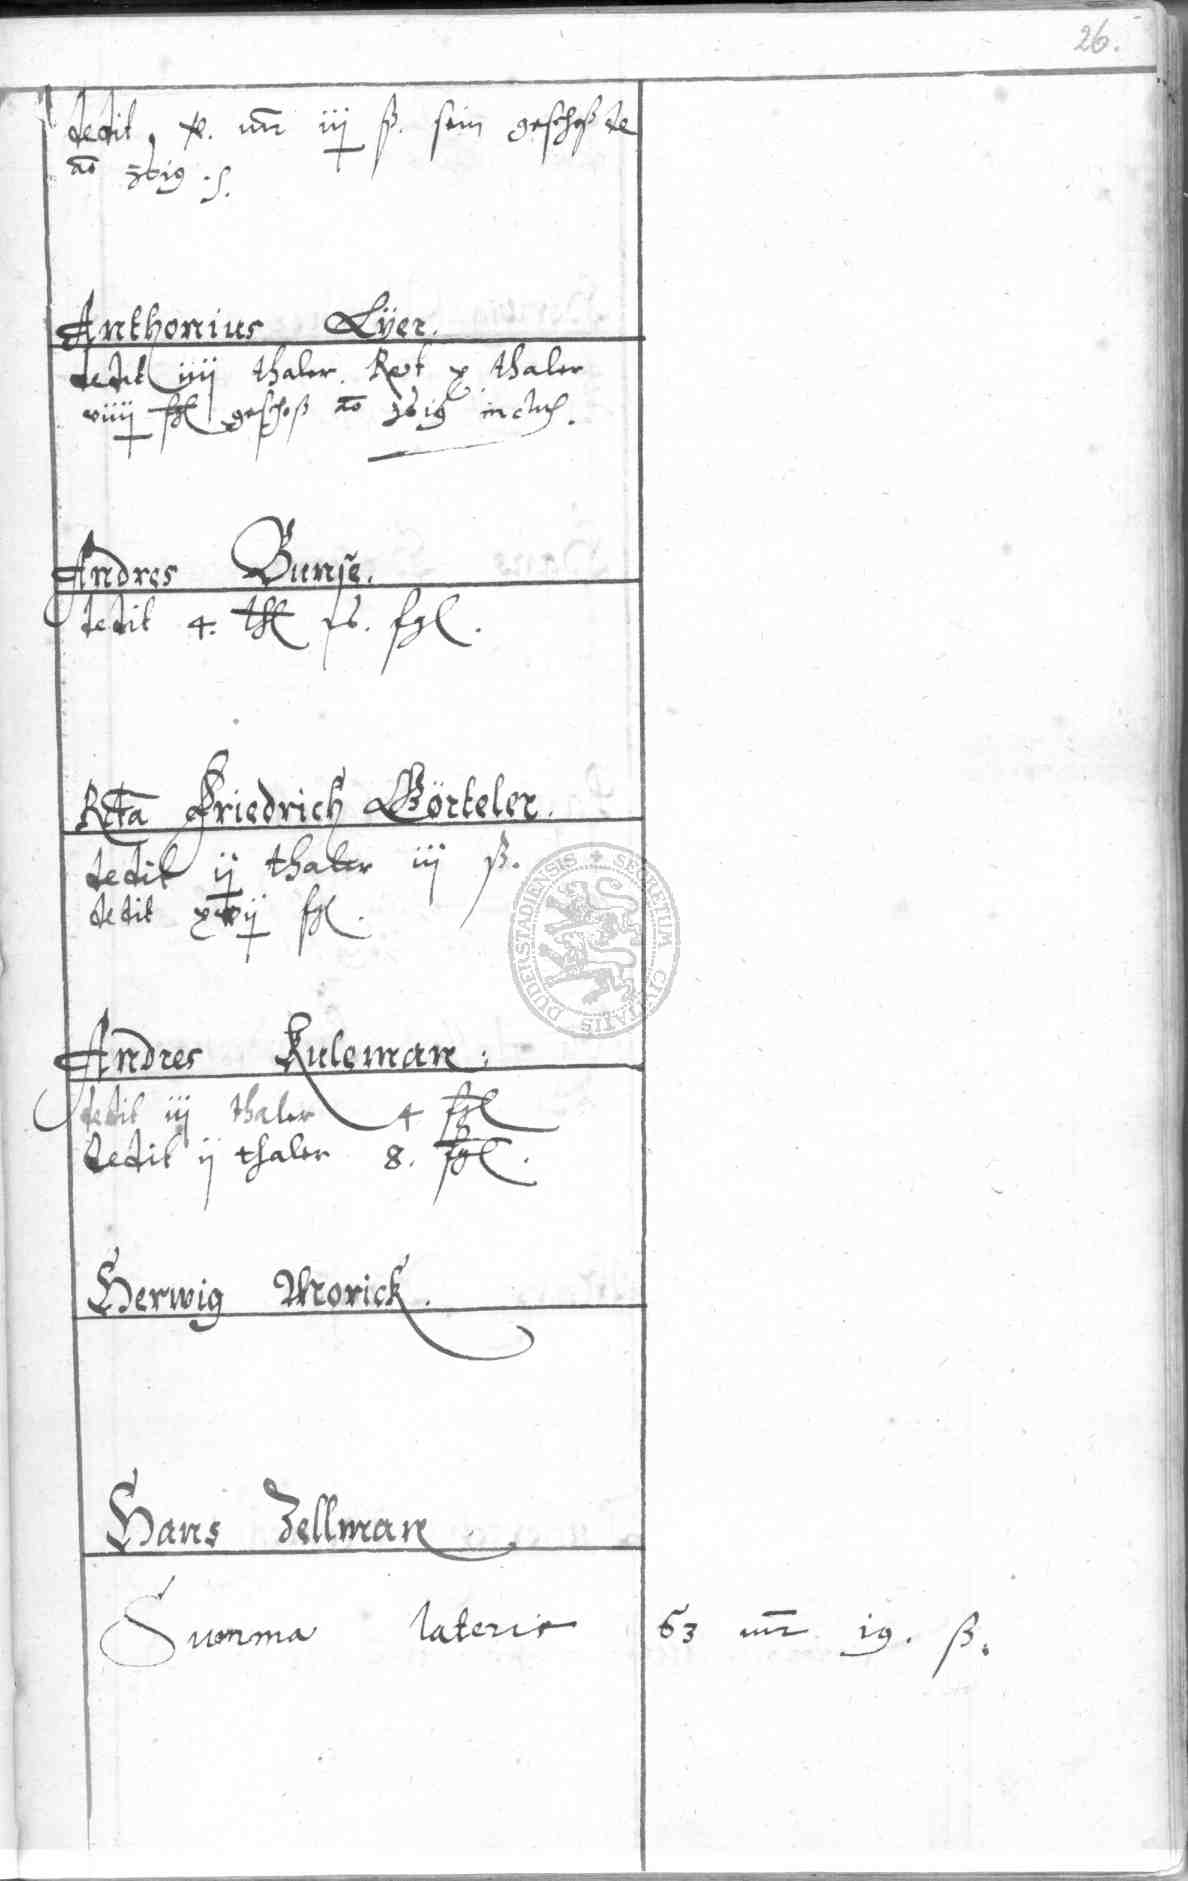 26.
dedit x. mr iij ß. sein geschoß de
ao
Anthonius Lÿer.
dedit iiij thaler. Rest x thaler
viiij fgl geschoß ao 1619 inclus.
Andres Bunse.
dedit 4. thl fgl.
Friedrich Görteler.
dedit ij thaler iij ß.
dedit fgl.
Andres Kuleman.
dedit iij thaler 4 fgl
dedit ij thaler 8. fgl.
Herwig Morick.
Hans Zellman
Summa lateris 63 mr 19. ß.
SECRETUM CIVITATIS DUDERSTADIENSIS